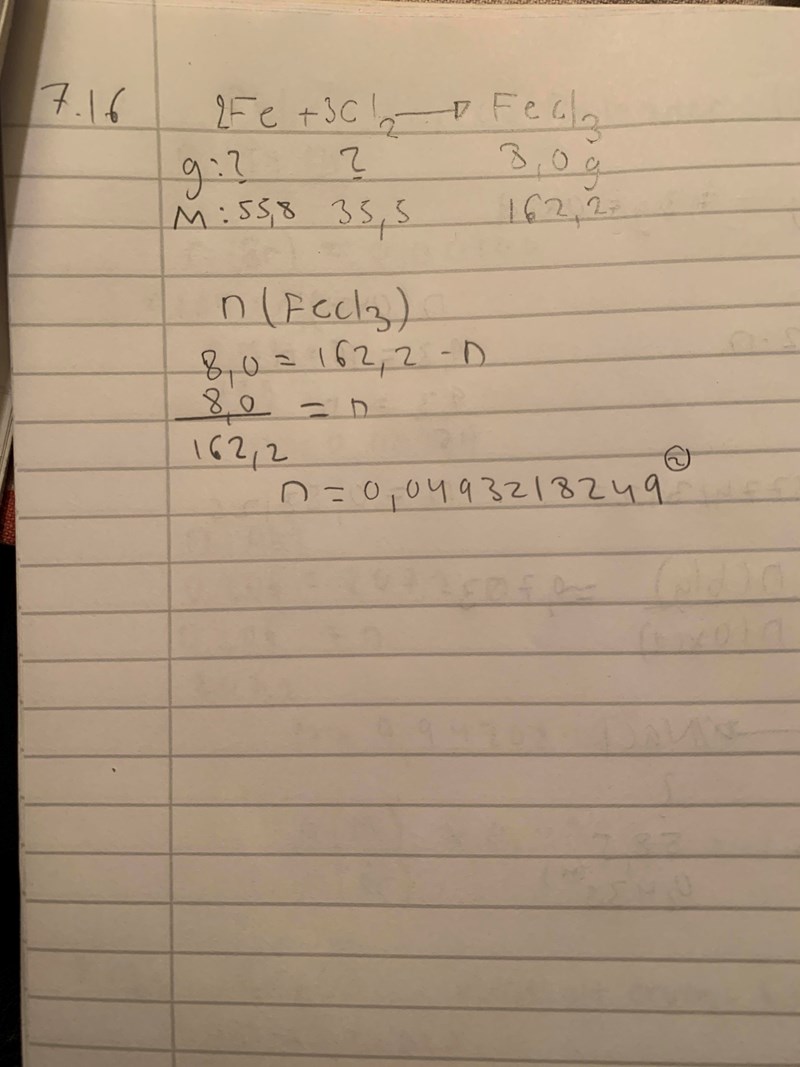 7.16 2Fe + 3Cl2 → FeCl3
g: ? ? 8,0 g
M: 55,8 35,5 162,2
n (FeCl3)
8,0 = 162,2 - n
8,0 = n
162,2
n = 0,0493218249